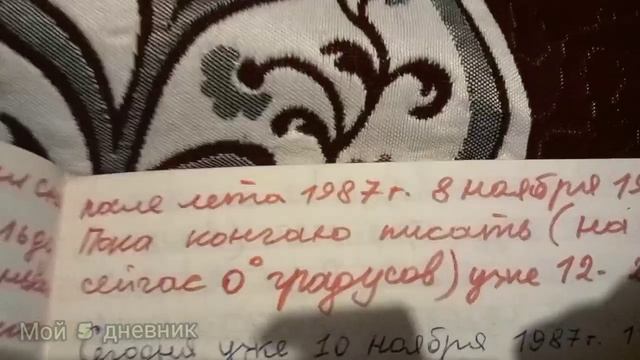 после лета 1987г. 8 ноября 19
Пока кончаю писать (на
сейчас 0° градусов) уже 12-
Сегодня уже 10 ноября 1987г. 1
Мой 5 дневник